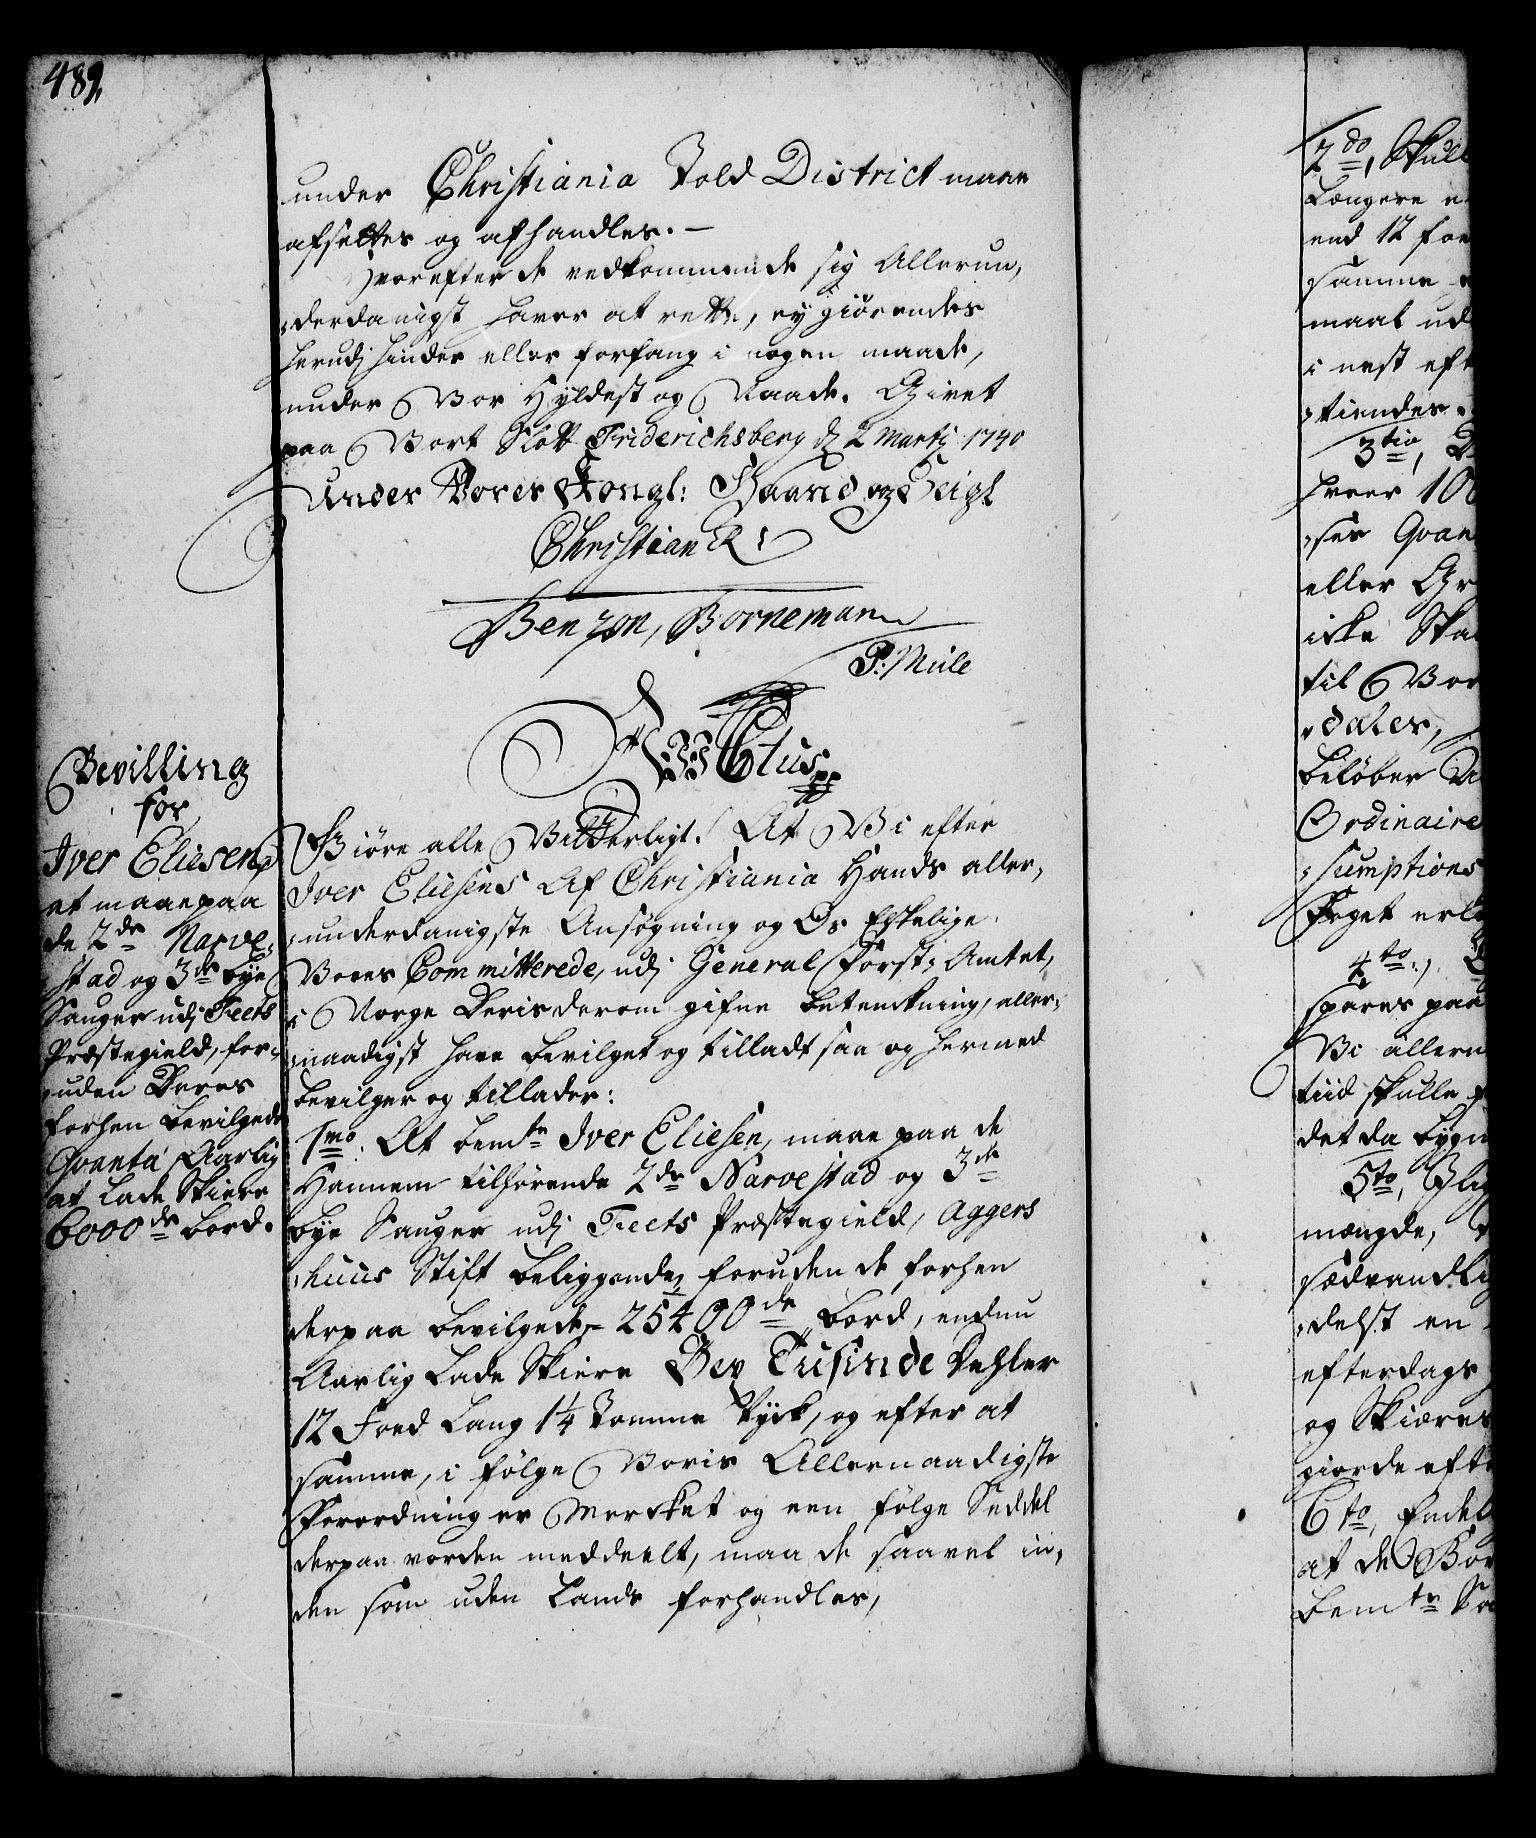 489.
under Christiania Told District maae
afsættes og afhandles. —
Hvorefter de vedkommende sig Allerun,
„derdanigst haver at rette, ey giörendes
herudj hinder eller forfang i nogen maade,
under Vor Hyldest og Naade. Givet
paa Vort Slott Friderichsberg dj 2 Martj 1740
Under Vores Kongl: Haand og Seigl
Christian R:
Benzon, Bornemann
P: Mule
Bevilling
for
Iver Eliesen
at maae paa
de 2de Narve,
stad og 3de bye
Sauger udj Feets
Præstegield, for,
„uden Deres
forhen bevilgede
Qvanta Aarlig
at lade Skiere
6000de bord.
WC6tus pp
Giöre alle Vitterligt: At Vi efter
Iver Eliesens Af Christiania Hands aller,
„underdanigste Ansögning og Os Elskelige
Vores Committerede, udj General Forst, Amtet,
i Norge Deris derom gifne betenckning, aller,
„naadigst have bevilget og tilladt saa og hermed
bevilger og tillader:
1mo: At bemte Iver Eliesen, maae paa de
Hannem tilhörende 2de Narvestad og 3de
bye Sauger udj Feets Præstegield, Aggers
„huus Stift beliggende, foruden de forhen
derpaa bevilgede 25400de bord, endnu
Aarlig lade Skiere Sex Tusinde Dehler
12 Foed Lang 1¼ Tomme Tyck, og efter at
samme, i fölge Voris Allernaadigste
Forordning er Mercket og een fölge Seddel
derpaa vorden meddeelt, maa de saavel in,
den som uden Lands forhandles,
2do, Skull
Længere e
end 12 foe
samme
maal ud
i nest eft
„tiendes.
3tio,
hver 100
„ses Qvan
eller Gr
icke Ska
til Vor
„daler,
beløber
Ordinaire
„sumptions
Toget erl
4to:,
spares paa
Vi allern
tiid skulle
det da bygn
5to,
mængde,
sædvandlig
„delst en
efterdags
og Skiæres
giorde eft
6to, Endel
at de Bor
bemte Sa